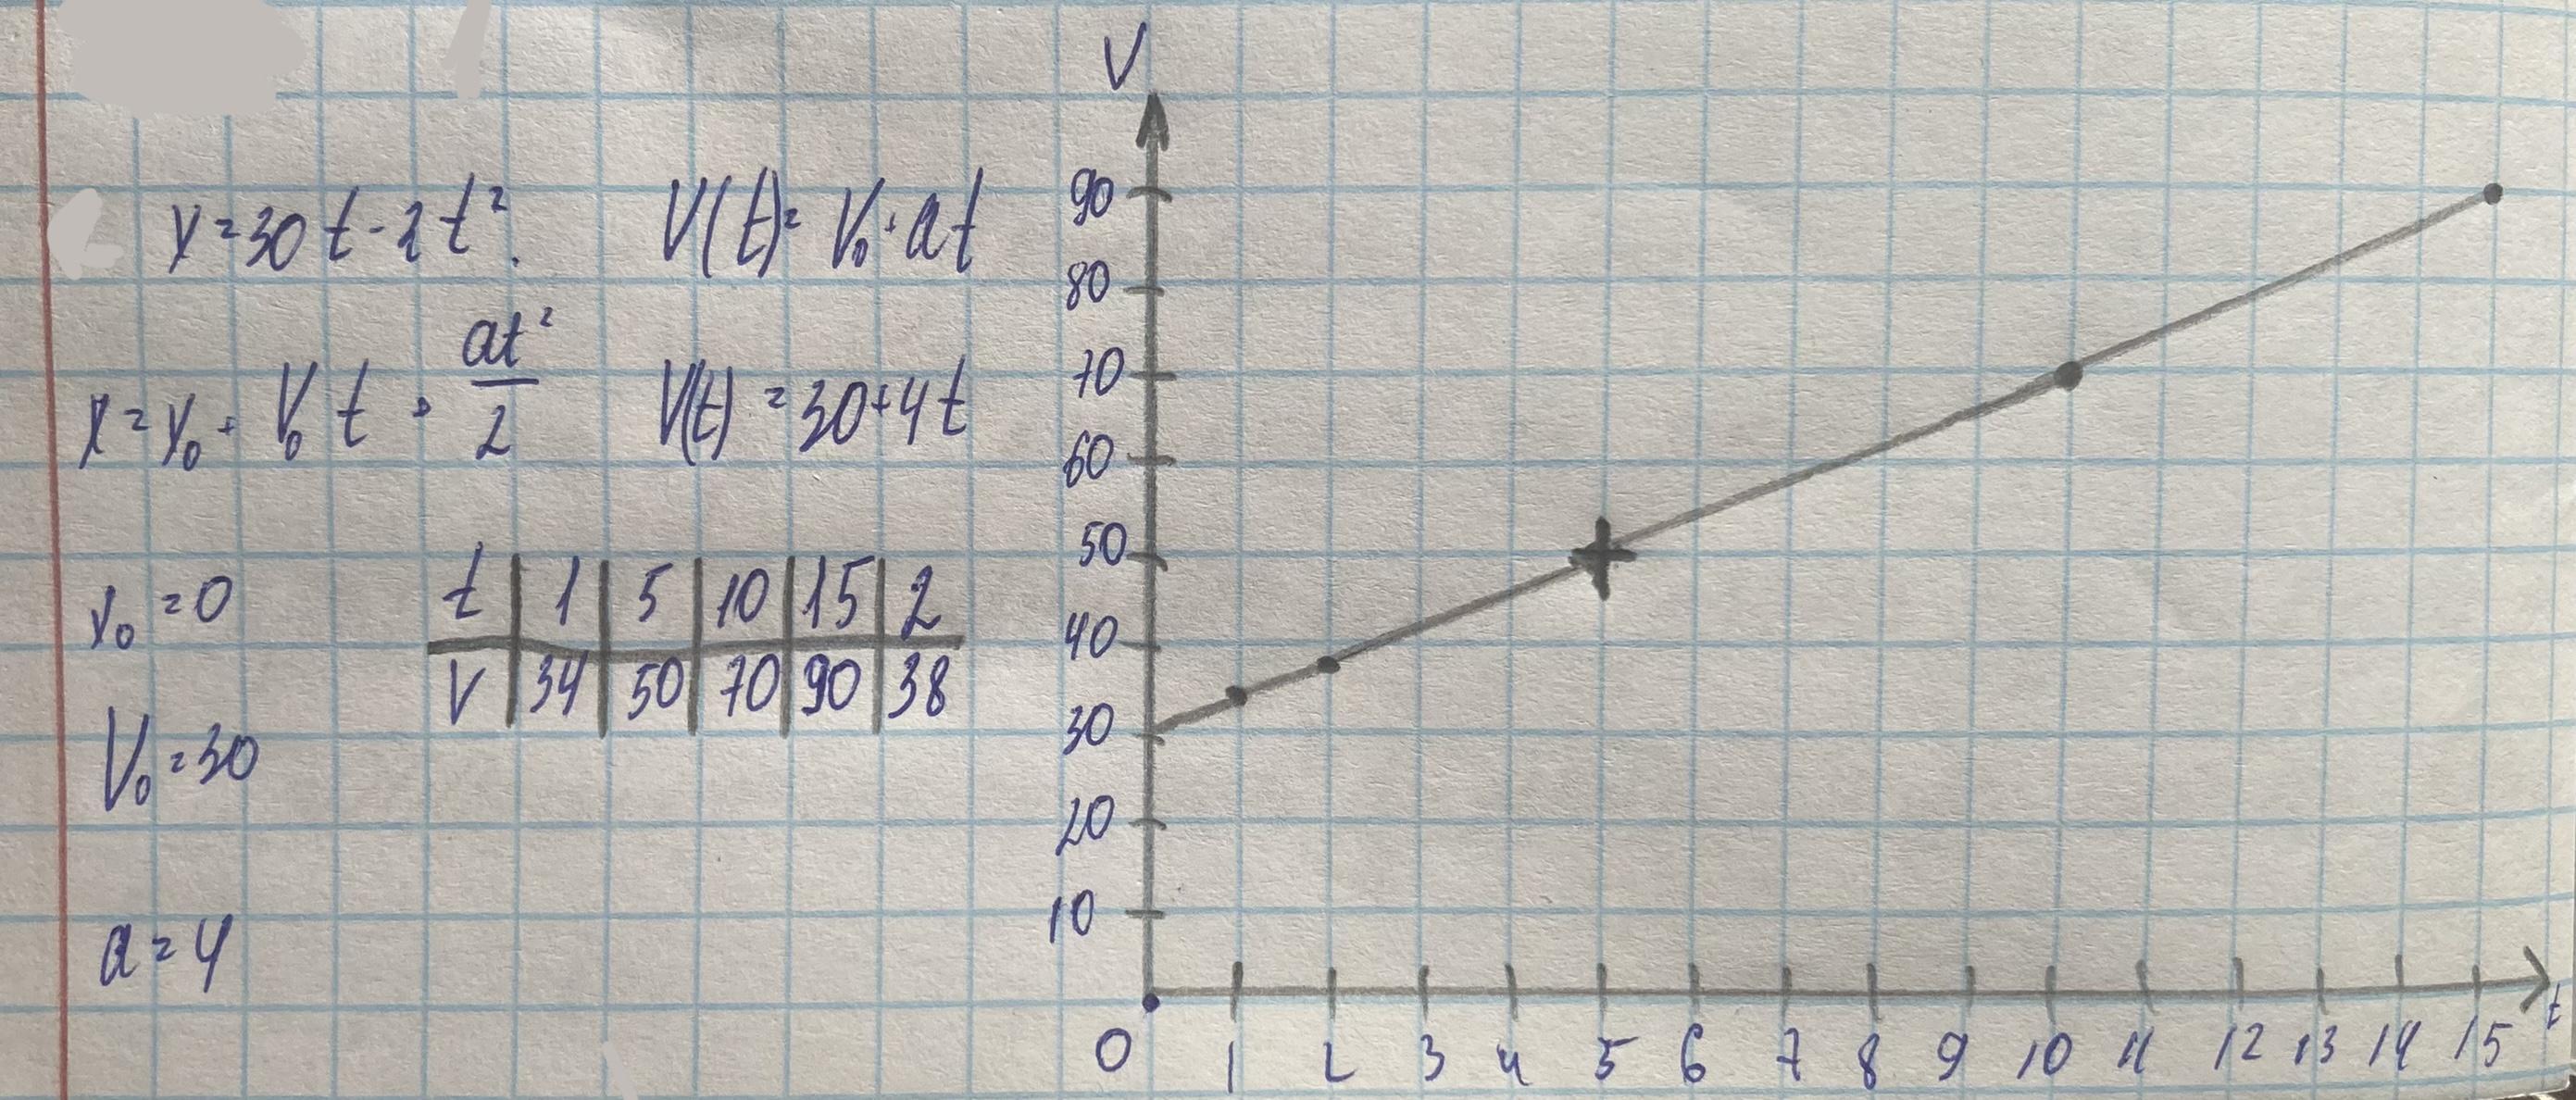 x=30t-2t².
V(t)=V₀+at
x=x₀+V₀t+at²/2
V(t)=30+4t
x₀=0
t | 1 | 5 | 10 | 15 | 2
V | 34 | 50 | 70 | 90 | 38
V₀=30
a=4
V
90
80
70
60
50
40
30
20
10
0 1 2 3 4 5 6 7 8 9 10 11 12 13 14 15 t